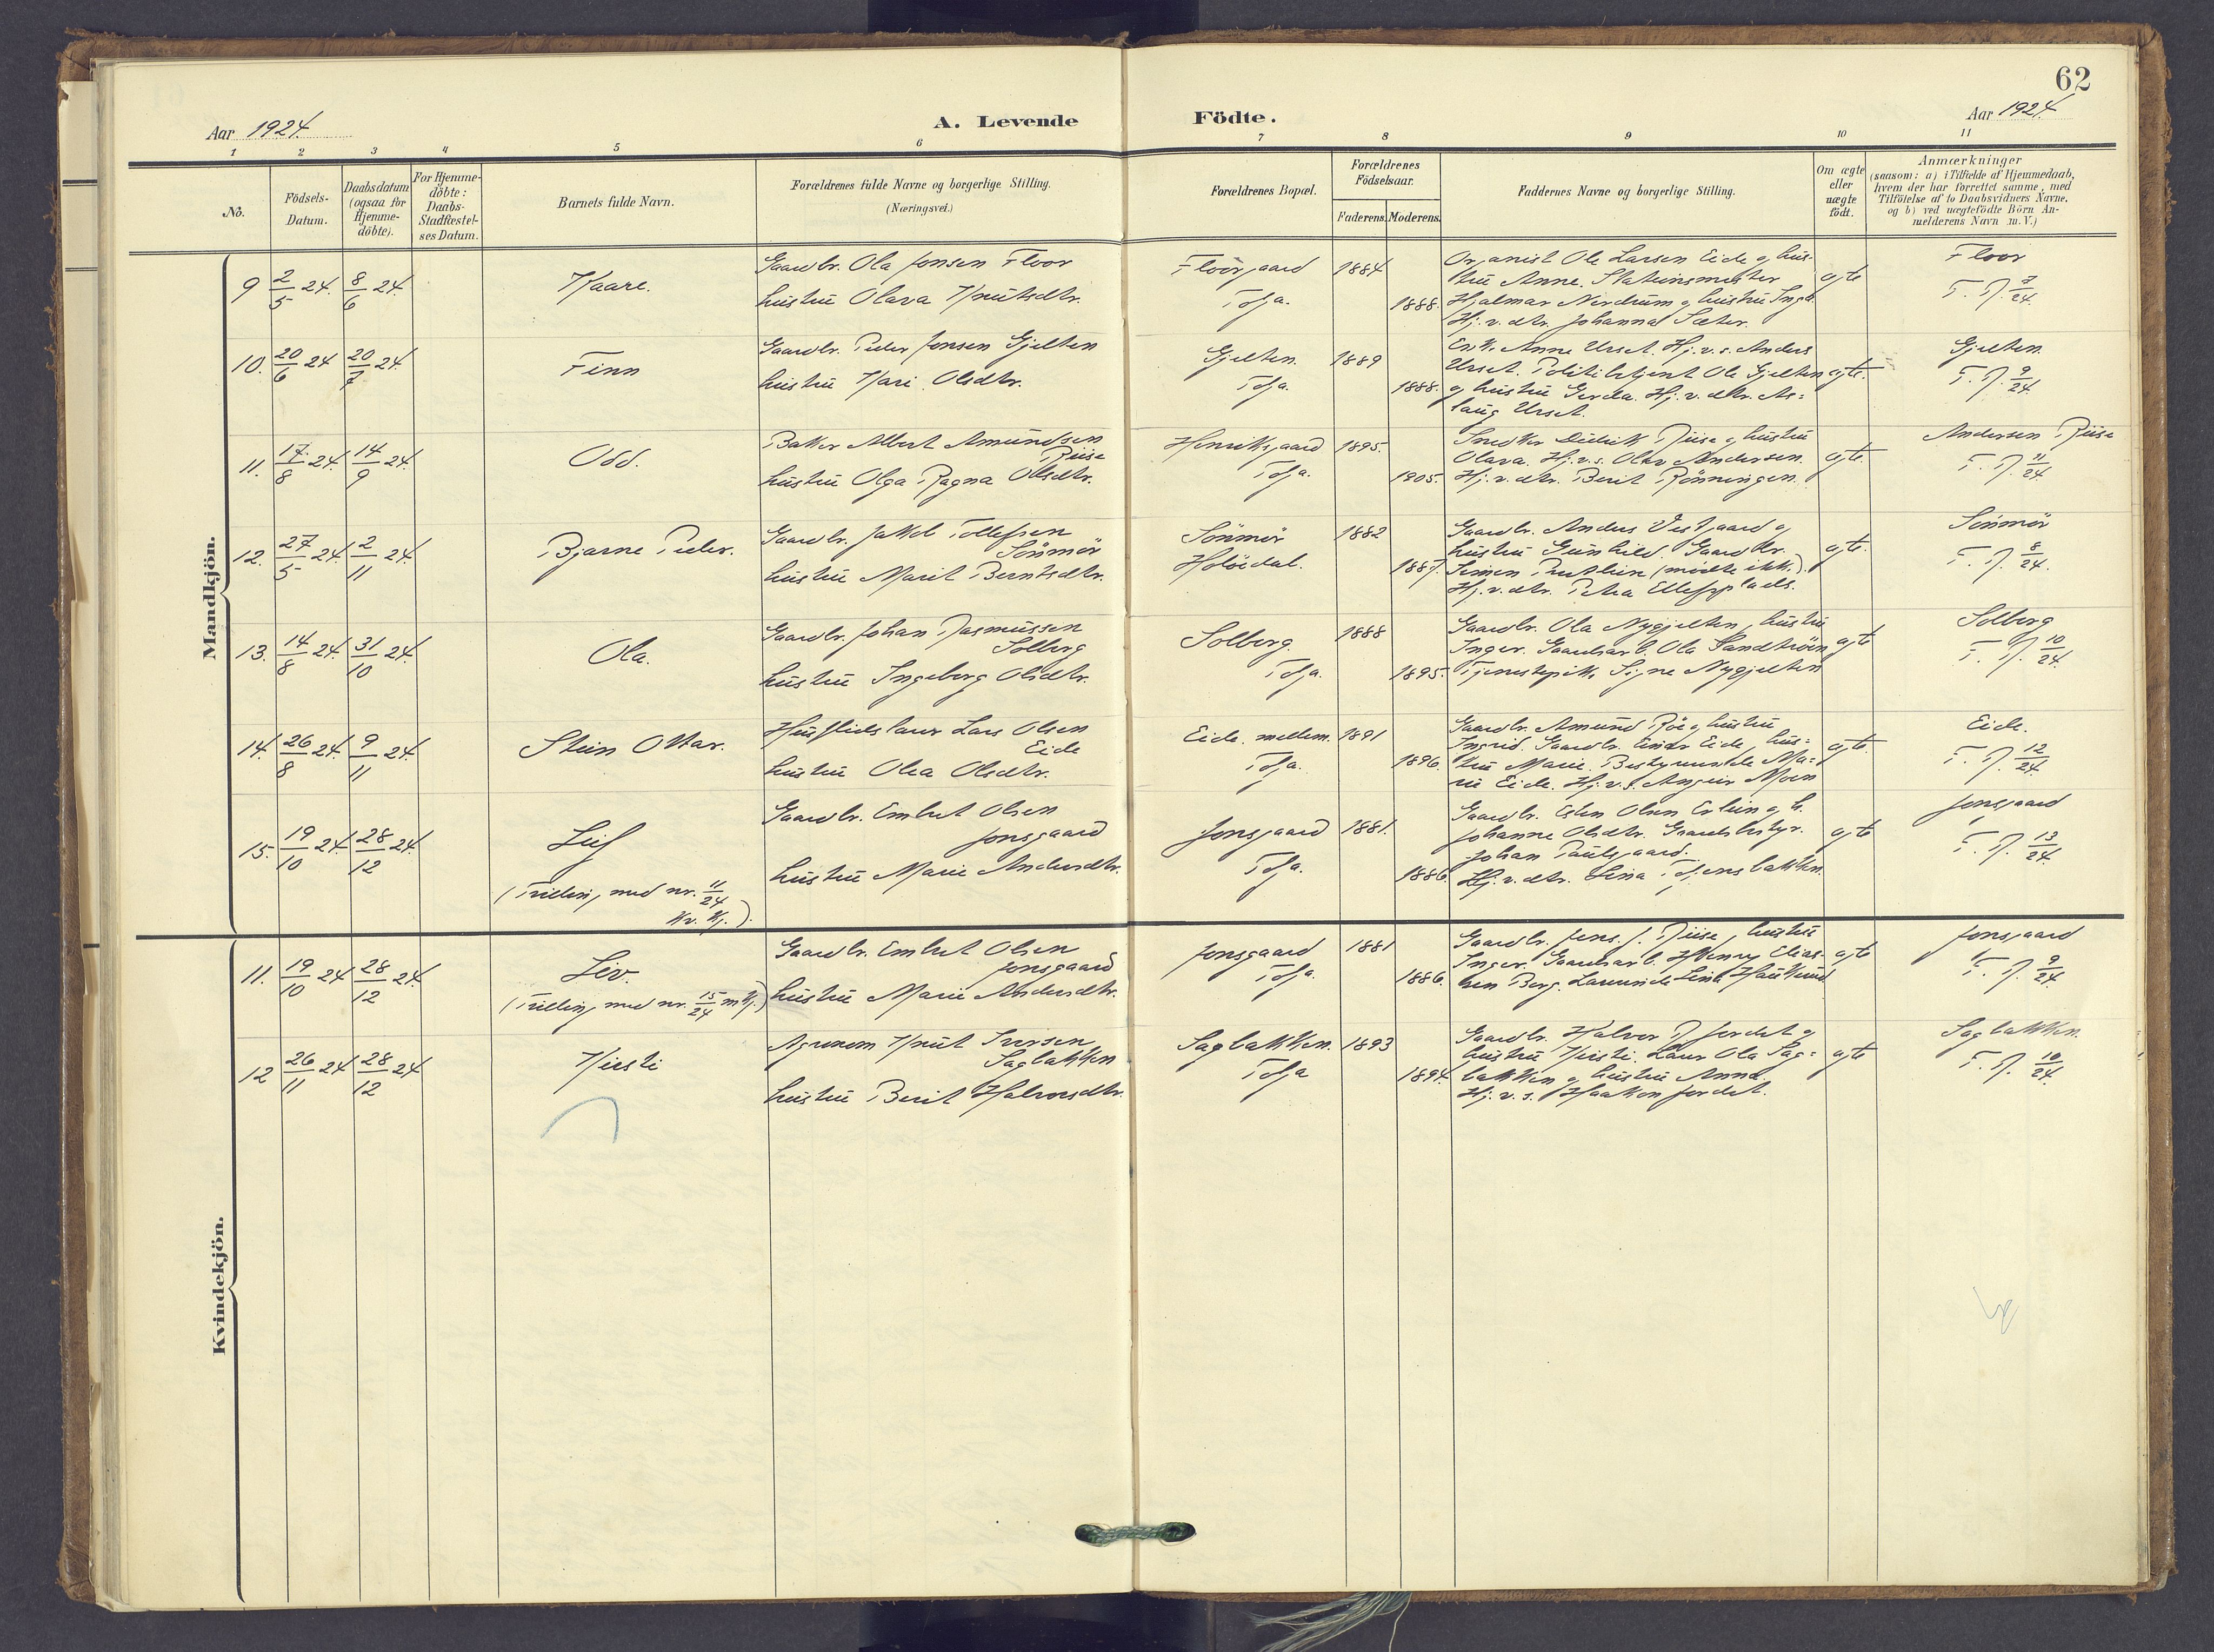 62
Aar 1924.
A. Levende Födte.
Aar 1924.
1 2 3 4 5 6 7 8 9 10 11
No.
Födsels-
Datum.
Daabsdatum
(ogsaa for
Hjemme-
döbte).
For Hjemme-
döbte:
Daabs-
Stadfæstel-
ses Datum.
Barnets fulde Navn.
Forældrenes fulde Navne og borgerlige Stilling.
(Næringsvei.)
Forældrenes Bopæl.
Forældrenes
Födselsaar.
Faderens. Moderens.
Faddernes Navne og borgerlige Stilling.
Om ægte
eller
uægte
födt.
Anmærkninger
(saasom: a) i Tilfælde af Hjemmedaab,
hvem der har forrettet samme, med
Tilföielse af to Daabsvidners Navne,
og b) ved uægtefödte Börn An-
melderens Navn m. V.)
Mandkjön.
9 2/5 24. 8/6 24.
Kaare.
Gaardbr. Ola Jonsen Floor
hustru Olava Knutsdtr.
Floorgaard
Tolga.
1884
1888.
Organist Ole Larsen Eide og hus-
tru Anne. Stationsmester
Hjalmar Nordrum og hustru Inga.
Hj. v. dtr. Johanna Sæter.
egte
Floor
10. 20/6 24 20/7 24.
Finn
Gaardbr. Peder Jonsen Gjelten
hustru Kari Olsdtr.
Gjelten.
Tolga.
1889
1888.
Enke Anne Urset. Hj. v. s. Anders
Urset. Politibetjent Ole Gjelten
og hustru Gerda. Hj. v. dtr. As=
laug Urset.
egte.
Gjelten.
T. N. 9/24
11. 17/8 24. 14/9 24.
Odd.
Baker Albert Amundsen
Riise
hustru Olga Ragna Olsdtr.
Henriksgaard
Tolga.
1895.
1905.
Snedker Didrik Riise og hustru
Olava. Hj. v. s. Olav Andersen.
Hj. v. dtr. Berit Rönningen.
egte.
Andersen Riise
T. N. 11/24
12. 27/5 24. 2/11 24.
Bjarne Peder.
Gaardbr. Jakob Tollefsen
Sönmör
hustru Marit Berntsdtr.
Sönmör
Holöidal.
1882
1887.
Gaardbr. Anders Vestgaard og
hustru Gunhild. Gaardbr.
Simen (mödte ikke).
Hj. v. dtr. Petra Ellefsplads.
egte.
Sönmör
T. N. 8/24.
13. 14/8 24. 31/10 24.
Ola.
Gaardbr. Johan Rasmussen
Solberg
hustru Ingeborg Olsdtr.
Solberg.
Tolga.
1888
1895.
Gaardbr. Ola Nygjelten, hustru
Inger. Gaardarb. Ole Sandtröen
Tjenestepike Signe Nygjelten
egte
Solberg
T. N. 10/24.
14. 26/8 24. 9/11 24.
Stein Ottar.
Husflidslærer Lars Olsen
Eide
hustru Olea Olsdtr.
Eide mellem.
Tolga.
1891
1896.
Gaardbr. Amund Röe og hustru
Ingrid. Gaardbr. Einar Eide, hus=
tru Marie. Bestyrerinde Ma=
rie Eide. Hj. v. s. Asgeir Moen
egte.
Eide.
T. N. 12/24.
15. 19/10 24. 28/12 24.
Leif
(Tvilling med nr. 11/24
kv. kj.).
Gaardbr. Embret Olsen
Jonsgaard
hustru Marie Andersdtr.
Jonsgaard
Tolga.
1881.
1886.
Gaardbr. Esten Olsen Erlien og h.
Johanne Olsdtr. Gaardsbestyr.
Johan Paulsgaard.
Hj. v. dtr. Lina
egte
Jonsgaard
T. N. 13/24.
Kvindekjön.
11. 19/10 24 28/12 24.
Liv.
(Tvilling med nr. 15/24 m kj.)
Gaardbr. Embret Olsen
Jonsgaard
hustru Marie Andersdtr.
Jonsgaard
Tolga.
1881
1886.
Gaardbr. Jens J. Riise, hustru
Inger. Gaardarb. Henry Elias-
sen Berg. Lærerinde Lina
egte
Jonsgaard
T. N. 9/24.
12 26/11 24 28/12 24
Kirsti
Agronom Knut Iversen
Sagbakken
hustru Berit Halvorsdtr.
Sagbakken.
Tolga
1893
1894.
Gaardbr. Halvor R. Jordet og
hustru Kirsti. Lærer Ola Sag=
bakken og hustru Anna.
Hj. v. s. Haakon Jordet.
egte
Sagbakken.
T. N. 10/24.